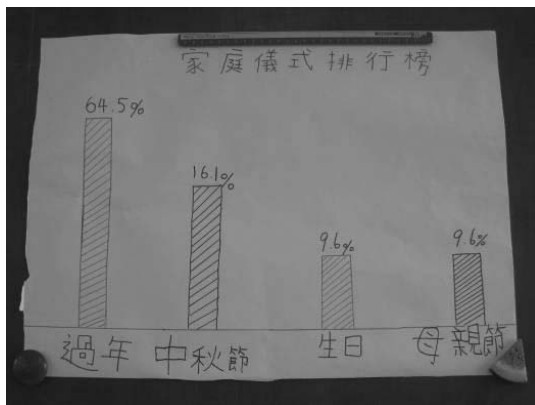 家庭儀式排行榜
64.5%
16.1%
9.6%
9.6%
過年 中秋節 生日 母親節